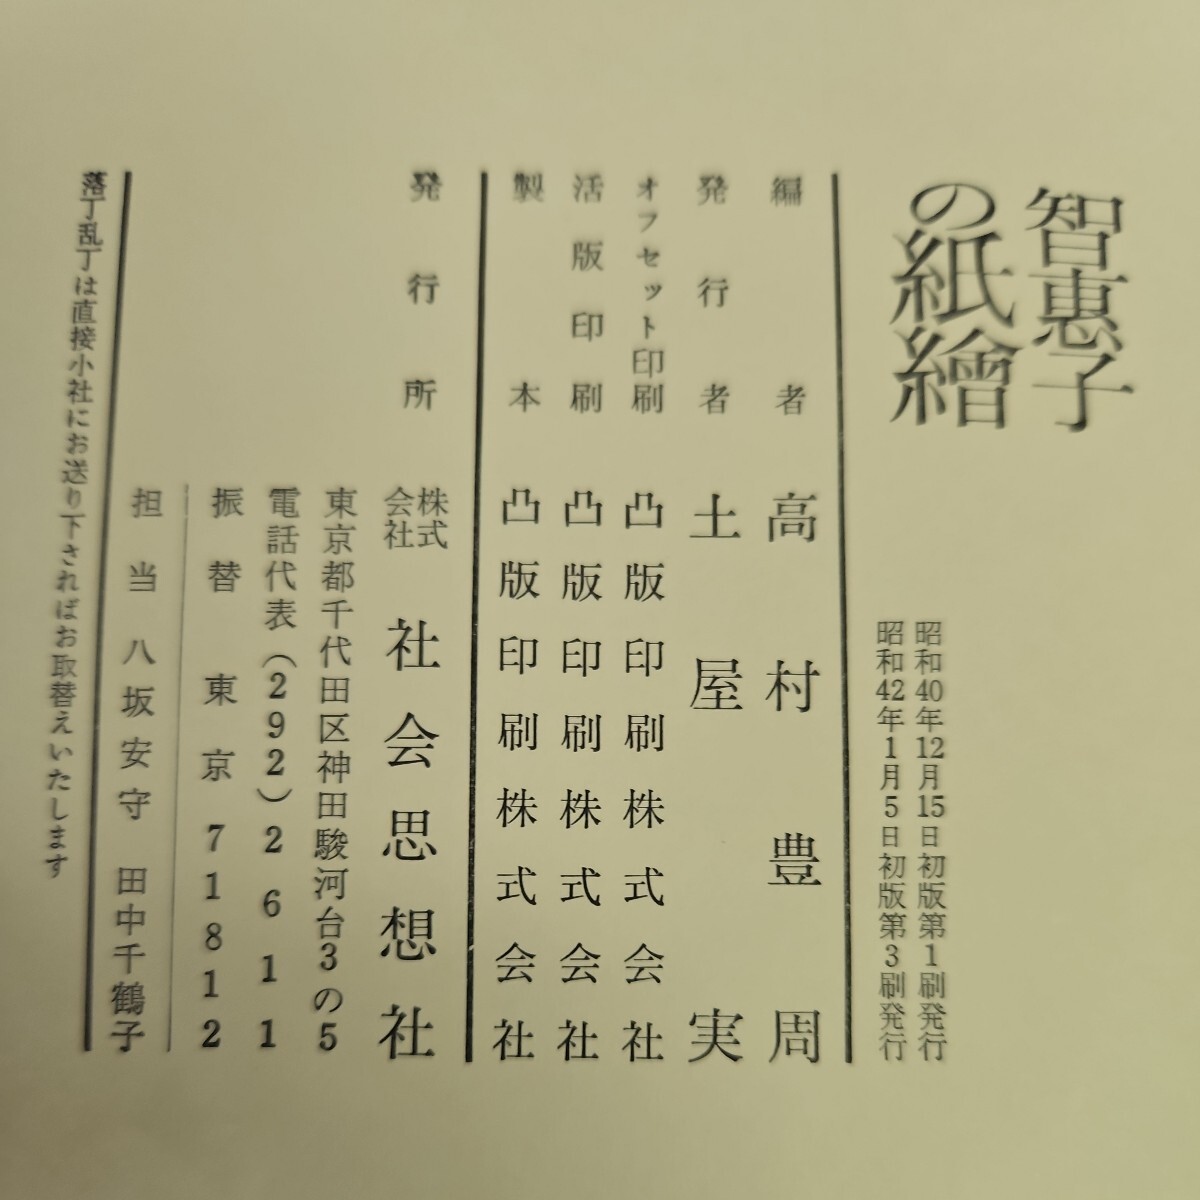 智恵子
の紙繪
昭和40年12月15日初版第1刷発行
昭和42年1月5日初版第3刷発行
編者 高村豊周
発行者 土屋実
オフセット印刷 凸版印刷株式会社
活版印刷 凸版印刷株式会社
製本 凸版印刷株式会社
発行所 株式会社 社会思想社
東京都千代田区神田駿河台3の5
電話代表(292)2611
振替東京71812
担当 八坂安守 田中千鶴子
落丁乱丁は直接小社にお送り下さればお取替えいたします